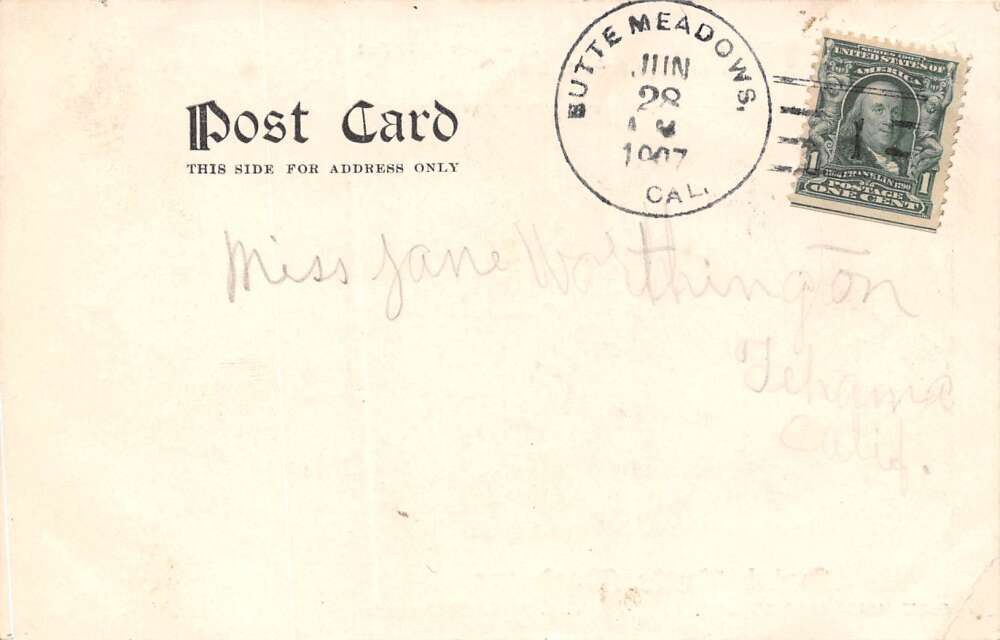 Post Card
THIS SIDE FOR ADDRESS ONLY
BUTTE MEADOWS,
JUN
28
1907
CAL.
SERIES 1902
UNITED STATES OF
AMERICA
1
1
FRANKLIN 1790
POSTAGE
ONE CENT
1
Miss Jane Worthington
Tehama
Calif.